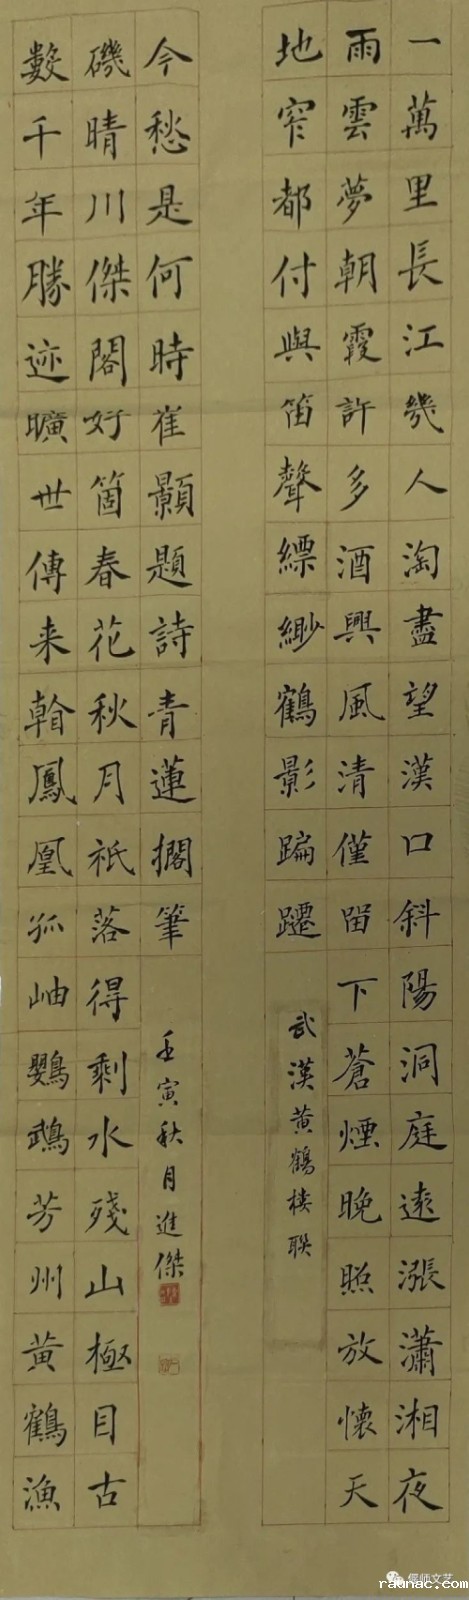 一萬里長江幾人淘盡望漢口斜陽洞庭遠漲瀟湘夜
雨雲夢朝霞許多酒興風清僅留下蒼煙晚照放懷天
地窄都付與笛聲縹緲鶴影蹁躚
武漢黄鶴樓聯
數千年勝迹曠世傳来鳳凰孤岫鸚鵡芳州黄鶴漁
磯晴川傑閣好箇春花秋月祇落得剩水殘山極目古
今愁是何時崔顥題詩青蓮擱筆
壬寅秋月進傑
偃师文艺
raunac.com